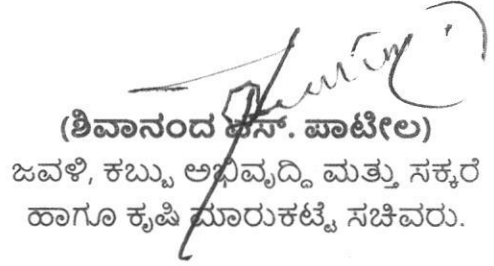 (ಶಿವಾನಂದ ಎಸ್. ಪಾಟೀಲ)
ಜವಳಿ, ಕಬ್ಬು ಅಭಿವೃದ್ಧಿ ಮತ್ತು ಸಕ್ಕರೆ
ಹಾಗೂ ಕೃಷಿ ಮಾರುಕಟ್ಟೆ ಸಚಿವರು.